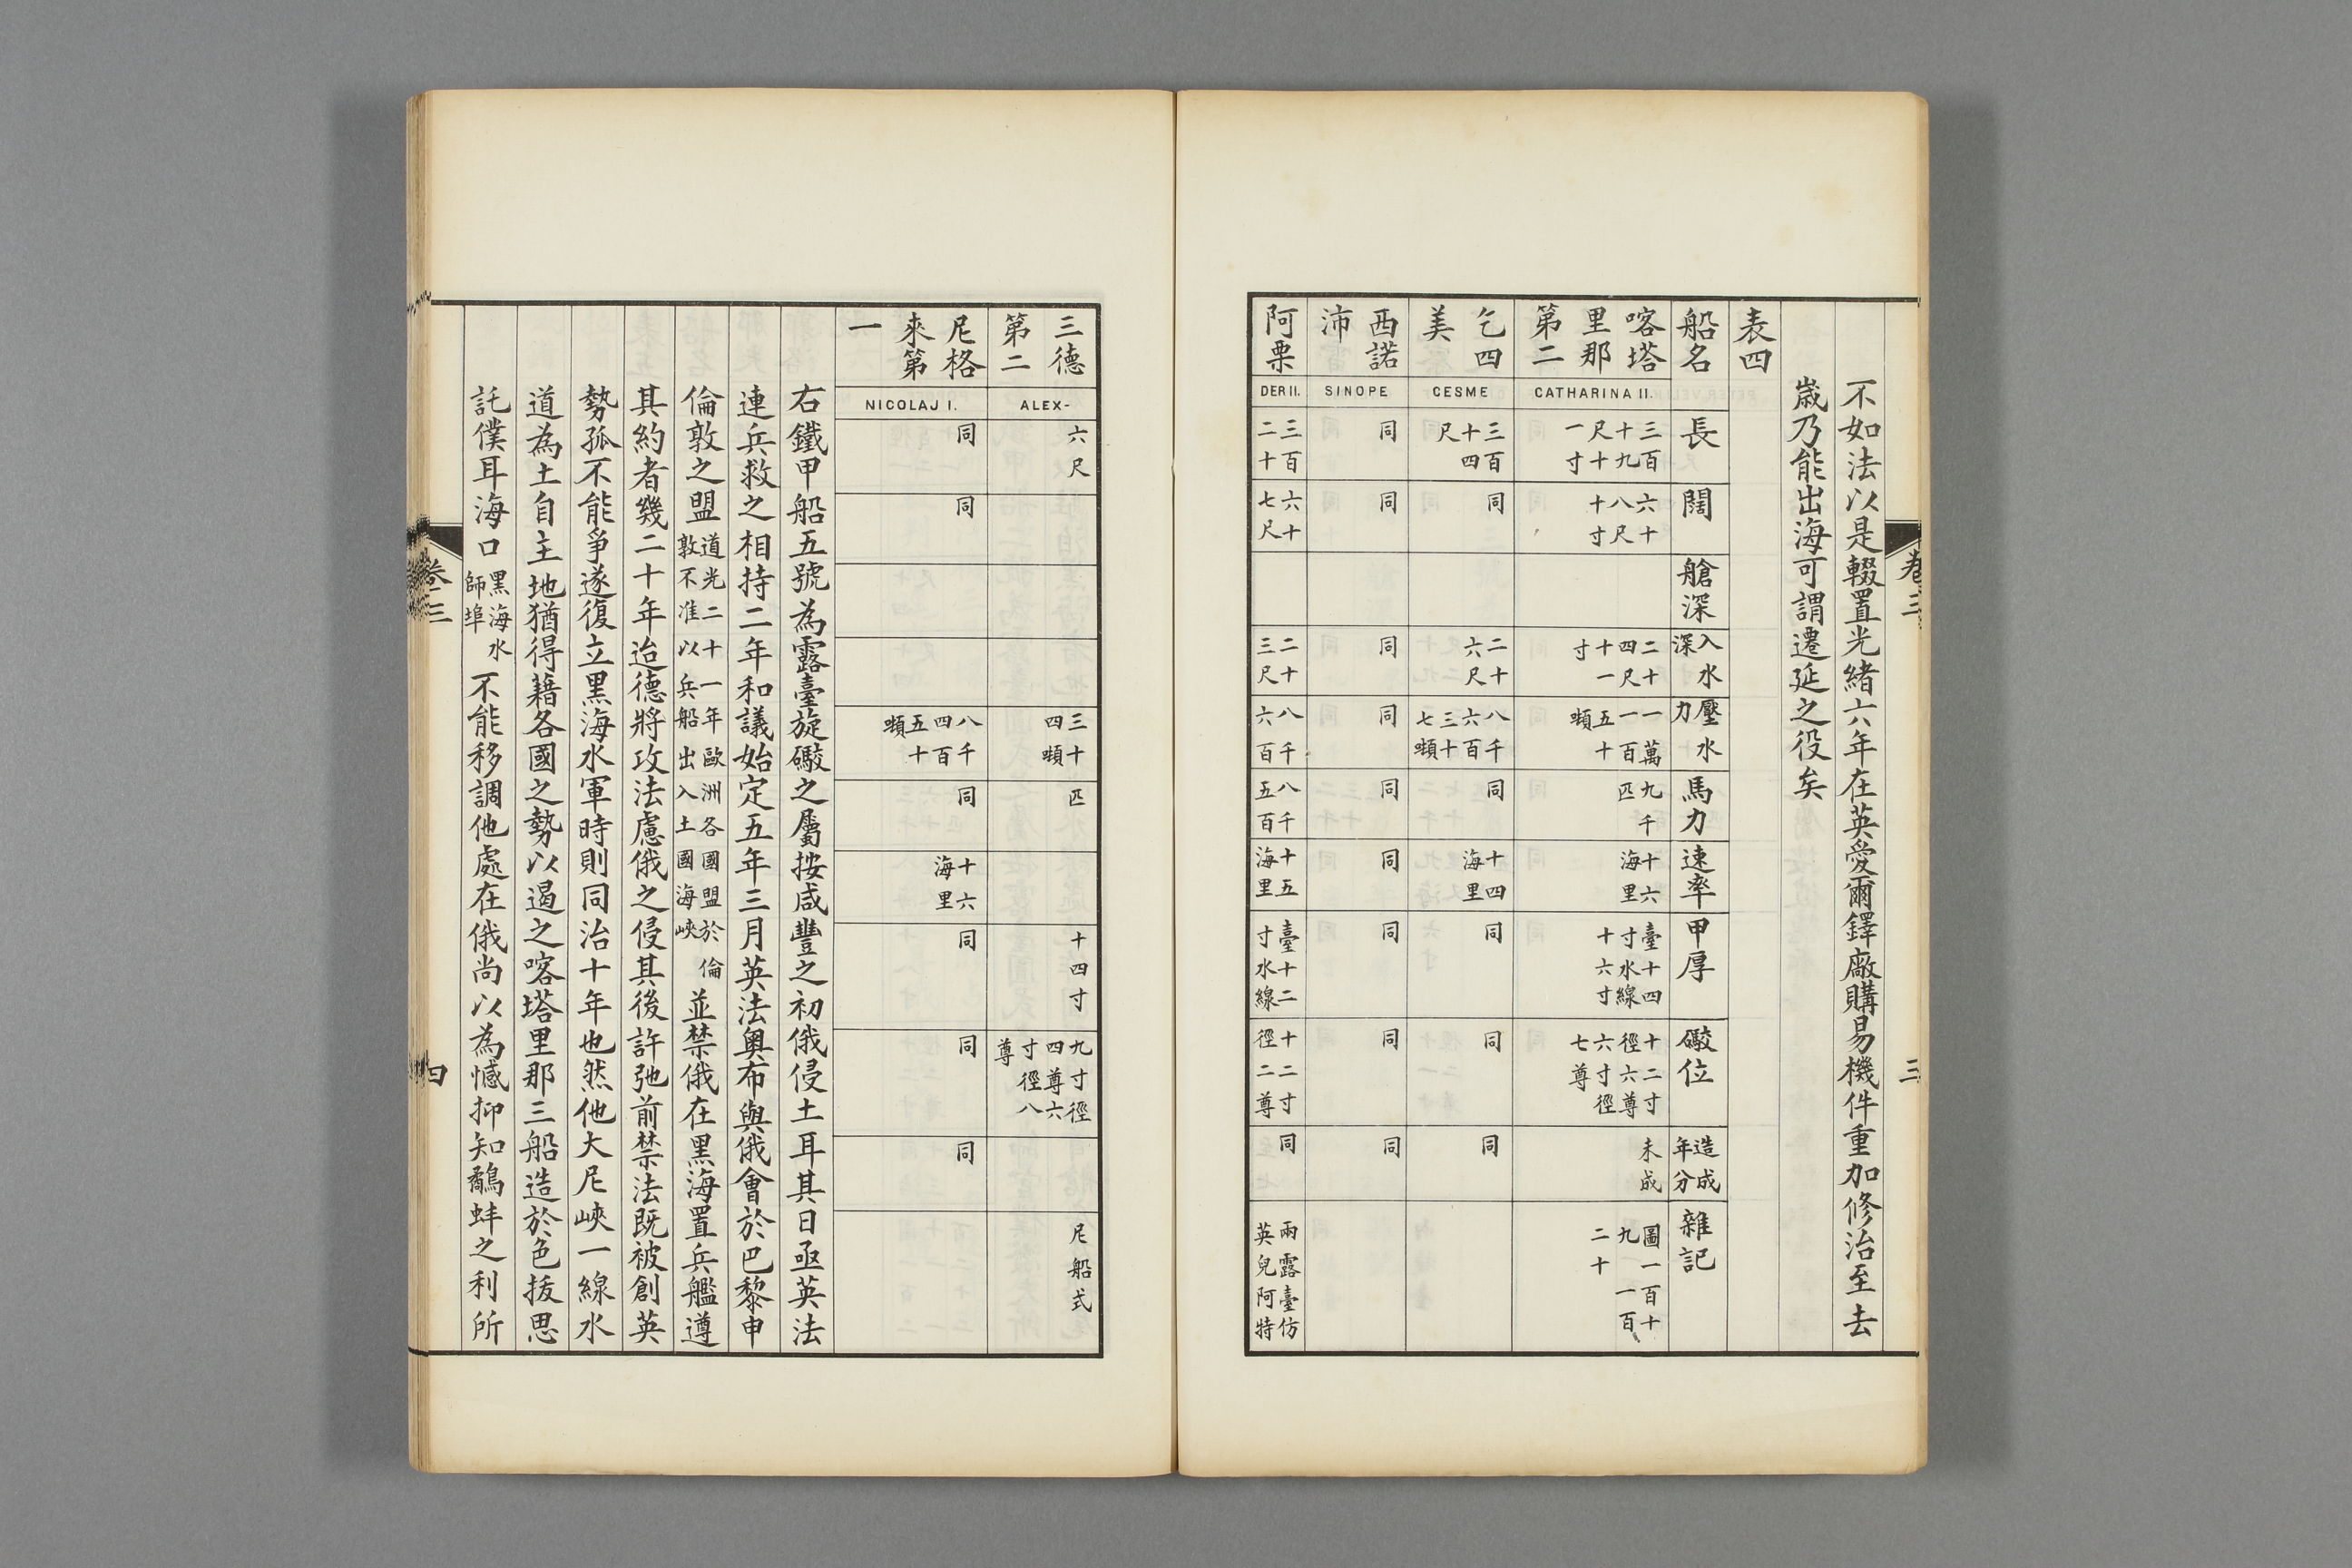 卷三
三
不如法以是輟置光緒六年在英愛爾鐸廠購易機件重加修治至去
歲乃能出海可謂遷延之役矣
表四
船名
長
闊
艙深
入水
深
壓水
力
馬力
速率
甲厚
礮位
造成
年分
雜記
喀塔
里那
第二
CATHARINA II.
三百
十九
尺十
一寸
六十
八尺
十寸
二十
四尺
十一
寸
一萬
一百
五十
噸
九千
匹
十六
海里
臺十四
寸水線
十六寸
十二寸
徑六尊
六寸徑
七尊
未成
圖一百十
九 一百
二十
乞四
美
CESME
三百
十四
尺
同
二十
六尺
八千
六百
三十
七噸
同
十四
海里
同
同
同
西諾
沛
SINOPE
同
同
同
同
同
同
同
同
同
阿栗
DER II.
三百
二十
六十
七尺
二十
三尺
八千
六百
八千
五百
十五
海里
臺十二
寸水線
十二寸
徑二尊
同
兩露臺仿
英兒阿特
三德
第二
ALEX-
六尺
三十
四噸
匹
十四寸
九寸徑
四尊六
寸徑八
尊
尼船式
尼格
來第
一
NICOLAJ I.
同
同
八千
四百
五十
噸
同
十六
海里
同
同
同
右鐵甲船五號為露臺旋礮之屬按咸豐之初俄侵土耳其日亟英法
連兵救之相持二年和議始定五年三月英法奧布與俄會於巴黎申
倫敦之盟道光二十一年歐洲各國盟於倫敦不准以兵船出入土國海峽並禁俄在黑海置兵艦遵
其約者幾二十年迨德將攻法慮俄之侵其後許弛前禁法既被創英
勢孤不能爭遂復立黑海水軍時則同治十年也然他大尼峽一線水
道為土自主地猶得藉各國之勢以遏之喀塔里那三船造於色拔思
託僕耳海口黑海水師埠不能移調他處在俄尚以為憾抑知鷸蚌之利所
卷三
四